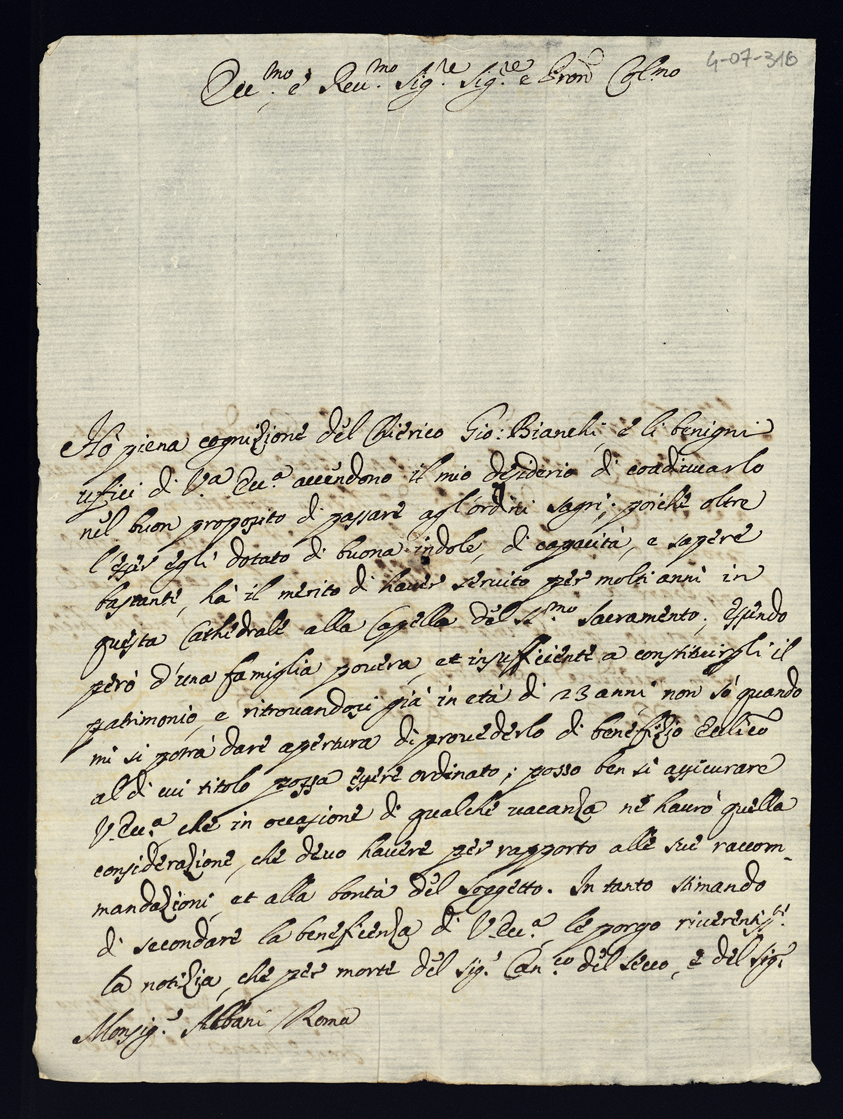 4-07-316
Ecc.mo e Reu.mo Sig.re Sig.re e Pron Col.mo
Hò piena cognizione del Chierico Gio: Bianchi, e li benigni
ufici di V.a Ecc.a accendono il mio desiderio di coadiuuarlo
nel buon proposito di passare agl'ordini sagri; poiche oltre
l'esser egli dotato di buona indole, di capacità, e sapere
bastante, hà il merito di hauer seruito per molti anni in
questa Cathedrale alla Capella del S.mo Sacramento; essendo
però d'una famiglia pouera, et insufficiente a constituirgli il
patrimonio, e ritrouandosi già in età di 23 anni non sò quando
mi si potrà dare apertura di prouederlo di benefizio Ecclico
al di cui titolo possa essere ordinato; posso ben sì assicurare
V. Ecc.a, che in occasione di qualche uacanza ne haurò quella
considerazione, che deuo hauere per rapporto alle sue raccom-
mandazioni, et alla bontà del soggetto. In tanto stimando
di secondare la beneficenza di V. Ecc.a, le porgo riuerentiss.te
la notizia, che per morte del Sig.r Can.co del Secco, e del Sig.r
Monsig.r Albani Roma